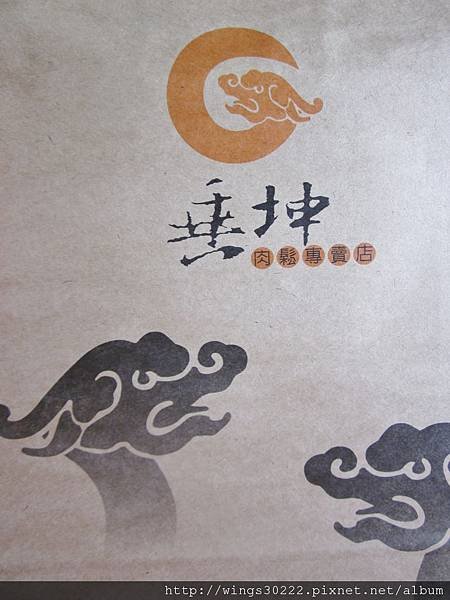 垂坤
肉鬆專賣店
http://wings30222.pixnet.net/album